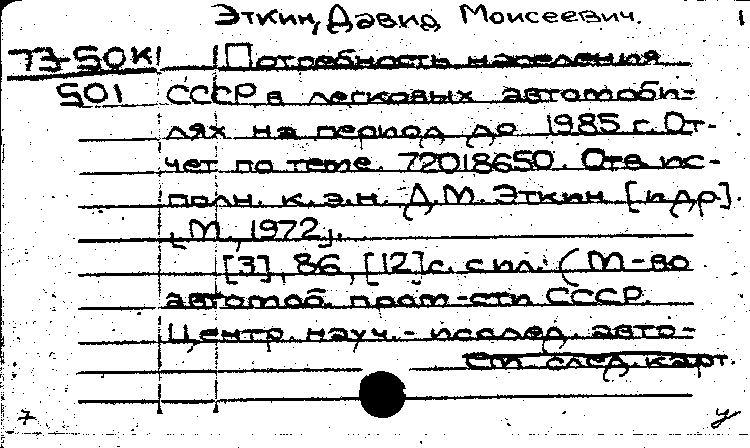 Эткин, Давид Моисеевич. 1
73-50К! Потребность населения
501 СССР в легковых автомоби-
лях на период до 1985 г. От-
чет по теме 72018650. Отв. ис-
полн. к.э.н. Д.М. Эткин [и др].
[М., 1972].
[3], 86, [12]с. с ил. (М-во
автомоб. пром-сти СССР.
Центр. науч.- исслед. авто-
см след. карт.
7 У